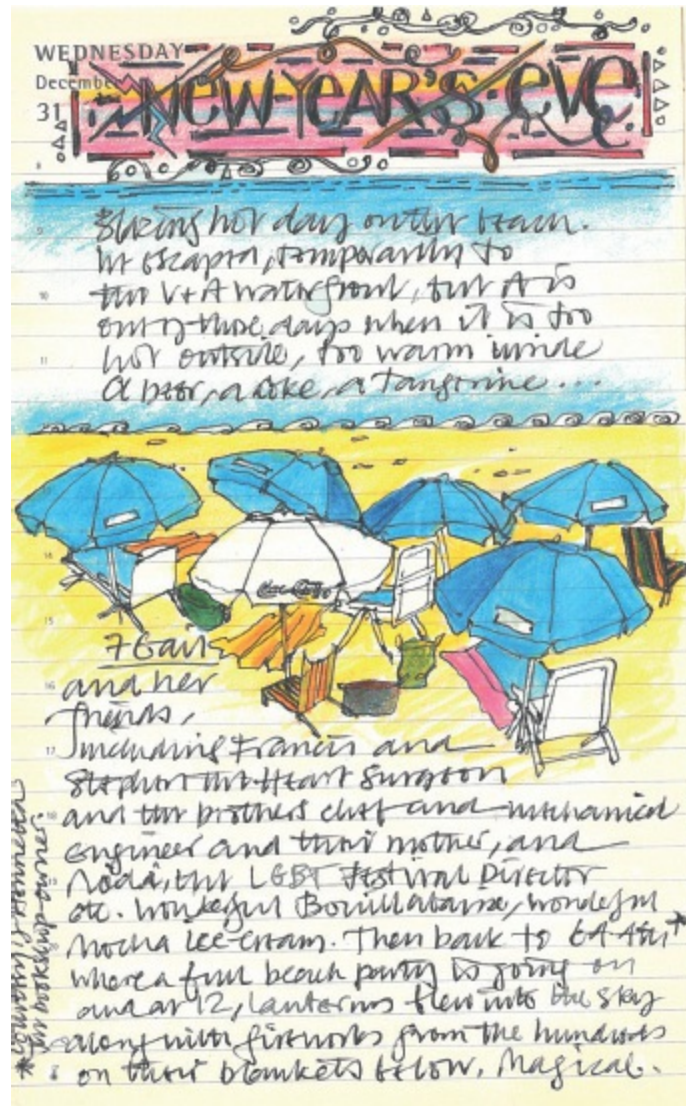 WEDNESDAY
December
31
NEW YEAR'S EVE
8
9
Blazing hot day on the beach.
We escaped, temporarily to
10
the V+A waterfront, but it is
one of those days when it is too
11
hot outside, too warm inside
A beer, a coke, a tangerine...
Coca-Cola
14
15
7
and her
16
friends,
17
Including Francis and
Stephen the Heart Surgeon
18
and the brothers chef and mechanical
engineer and their mother, and
the LGBT Festival Director
etc. Wonderful Bouillabaisse, wonderful
Mocha Ice-cream. Then back to *
where a full beach party is going on
and at 12, lanterns flew into the sky
along with fireworks from the hundreds
on their blankets below. Magical.
* courtesy of Henrietta
the bookshop owner.